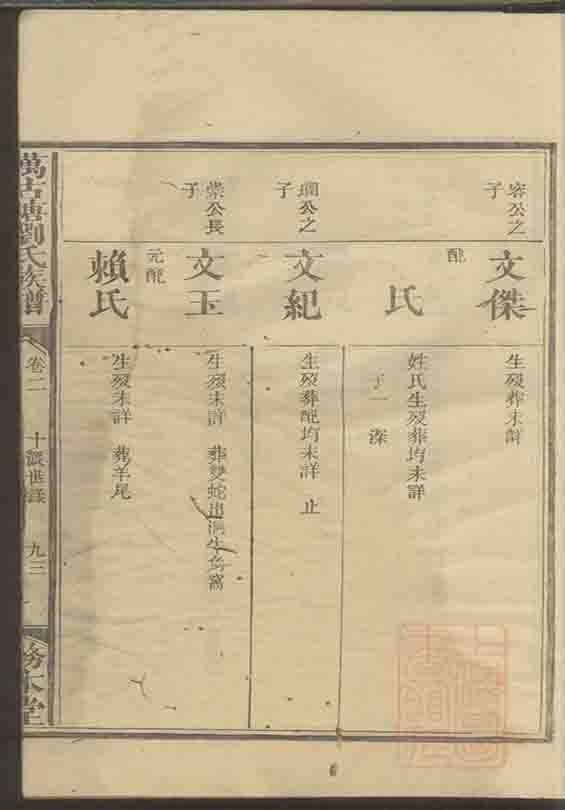 容公之
子
文傑
生殁葬未詳
配
氏
姓氏生殁葬均未詳
子一
瓓公之
子
文紀
生殁葬配均未詳 止
崇公長
子
文玉
生殁未詳 葬雙蛇出洞生窩
元配
賴氏
生殁未詳 葬羊尾
萬古塘劉氏族譜
卷二
世錄
九三
務本堂